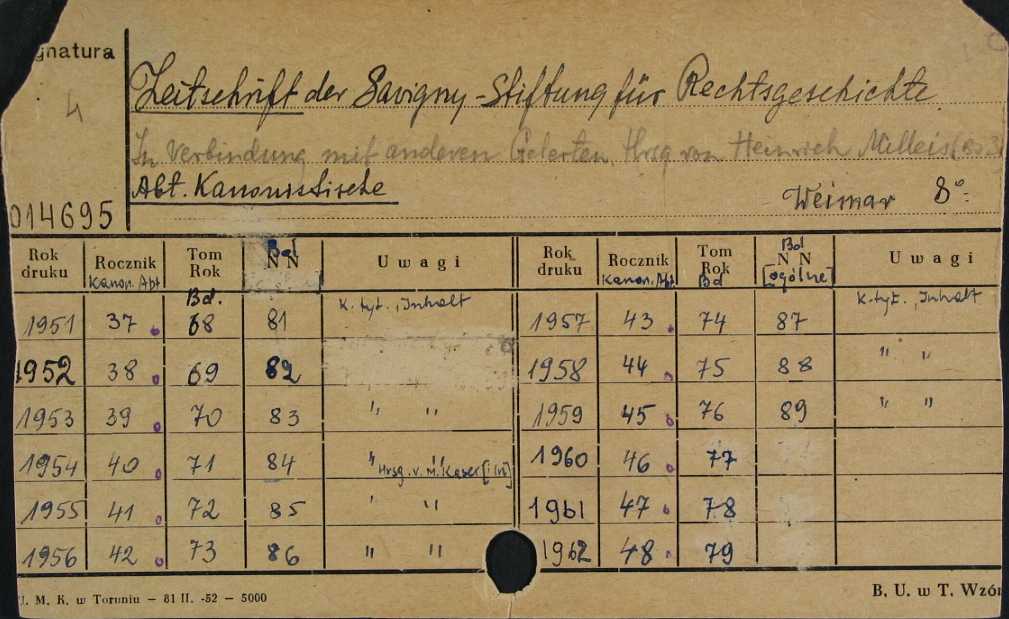 gnatura
4
Zeitschrift der Savigny-Stiftung für Rechtsgeschichte
In Verbindung mit anderen Gelerten Hrsg von Heinrich Mitteis
Abt. Kanonistische
014695
Weimar 8°
Rok druku Rocznik Kanon. Abt Tom Rok Bd. Bd N N Uwagi Rok druku Rocznik Kanon. Abt Tom Rok Bd Bd N N [ogólne] Uwagi
1951 37 68 81 K. tyt., Inhalt 1957 43 74 87 K. tyt., Inhalt
1952 38 69 82 1958 44 75 88 " "
1953 39 70 83 " " 1959 45 76 89 " "
1954 40 71 84 " " Hrsg. v. M. Kaser [i in] 1960 46 77
1955 41 72 85 " " 1961 47 78
1956 42 73 86 " " 1962 48 79
U. M. K. w Toruniu – 81 II. -52 – 5000
B. U. w T. Wzó